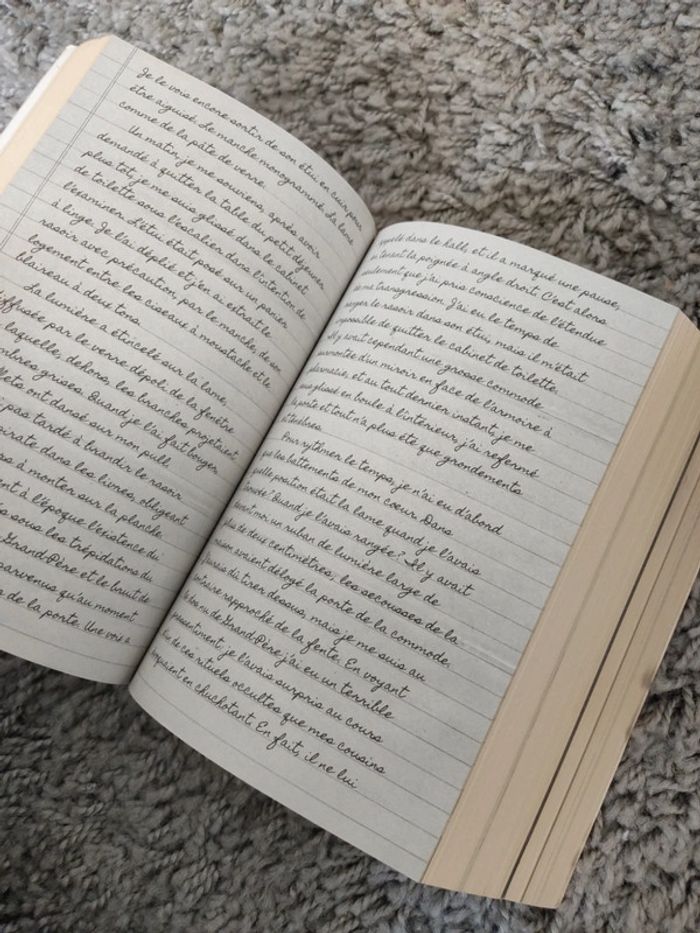 Je le vois encore sortir de son étui en cuir pour
être aiguisé. Le manche monogrammé. La lame
comme de la pâte de verre.
Un matin, je me souviens, après avoir
demandé à quitter la table du petit déjeuner
plus tôt, je me suis glissé dans le cabinet
de toilette sous l'escalier dans l'intention de
l'examiner. L'étui était posé sur un panier
à linge. Je l'ai déplié et j'en ai extrait le
rasoir avec précaution, par le manche, de son
logement entre les ciseaux à moustache et le
blaireau à deux tons.
La lumière a étincelé sur la lame,
diffusée par le verre dépoli de la fenêtre
laquelle, dehors, les branches projetaient
ombres grises. Quand je l'ai fait bouger
ont dansé sur mon pull.
pas tardé à brandir le rasoir
pirate dans les livres, obligeant
à monter sur la planche
à l'époque l'existence du
sous les trépidations du
Grand-Père et le bruit de
parvenus qu'au moment
de la porte. Une voix a
appelé dans le hall, et il a marqué une pause,
en tenant la poignée à angle droit. C'est alors
seulement que j'ai pris conscience de l'étendue
de ma transgression. J'ai eu le temps de
ranger le rasoir dans son étui, mais il m'était
impossible de quitter le cabinet de toilette.
Il y avait cependant une grosse commode
surmontée d'un miroir en face de l'armoire à
pharmacie, et au tout dernier instant, je me
suis glissé en boule à l'intérieur, j'ai refermé
la porte et tout n'a plus été que grondements
et ténèbres.
Pour rythmer le temps, je n'ai eu d'abord
que les battements de mon coeur. Dans
quelle position était la lame quand je l'avais
trouvée? Quand je l'avais rangée? Il y avait
devant moi un ruban de lumière large de
plus de deux centimètres, les secousses de la
maison avaient délogé la porte de la commode.
J'aurais dû tirer dessus, mais je me suis au
contraire rapproché de la fente. En voyant
le torse nu de Grand-Père, j'ai eu un terrible
pressentiment: je l'avais surpris au cours
de ces rituels occultes que mes cousins
en chuchotant. En fait, il ne lui